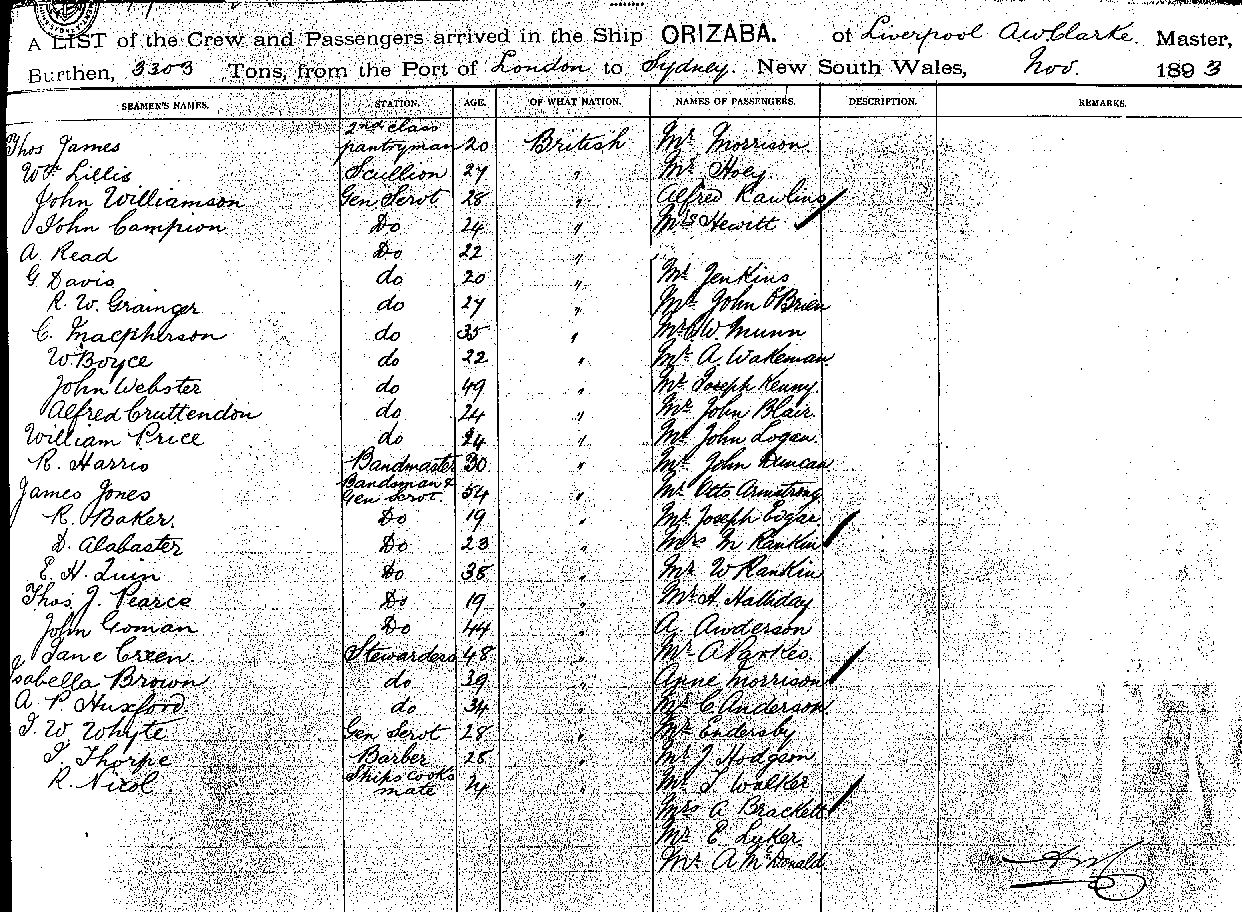 A LIST of the Crew and Passengers arrived in the Ship ORIZABA. of Liverpool A W Clarke. Master,
Burthen, 3303 Tons, from the Port of London to Sydney. New South Wales, Nov. 1893
SEAMEN'S NAMES. STATION. AGE. OF WHAT NATION. NAMES OF PASSENGERS. DESCRIPTION. REMARKS.
Thos James 2nd class pantryman 20 British Mr Morrison
Wm Lillis Scullion 27 " Mr Hoey
John Williamson Gen Servt 28 " Alfred Rawlins
John Campion Do 24 " Mrs Hewitt
A. Read Do 22 "
G. Davis do 20 " Mr Jenkins
R. W. Grainger do 27 " Mr John O'Brien
C. Macpherson do 35 " Mr C W. Munn
W. Boyce do 22 " Mr A Wakeman
John Webster do 49 " Mr Joseph Kenny.
Alfred Cruttendon do 24 " Mr John Blair.
William Price do 24 " Mr John Logan.
R. Harris Bandmaster 30 " Mr John Duncan
James Jones Bandsman & Gen Servt 54 " Mr Otto Armstrong
R. Baker. Do 19 " Mr Joseph Edgar
D. Alabaster Do 23 " Mrs M Rankin
E. H. Quin Do 38 " Mr W Rankin
Thos J. Pearce Do 19 " Mr H. Halliday
John Goman Do 44 " A. Awderson
Jane Green. Stewardess 48 " Mr A Parkes.
Isabella Brown do 39 " Anne Morrison
A P Huxford do 34 " Mr C Anderson
J. W. Whyte Gen Servt 28 " Mr Endersby
T. Thorpe Barber 28 " Mr J Hodgson
R. Nicol Ships cooks mate 21 " Mr T Walker
Mrs A Brackett
Mr E Lyker.
Mr A McDonald